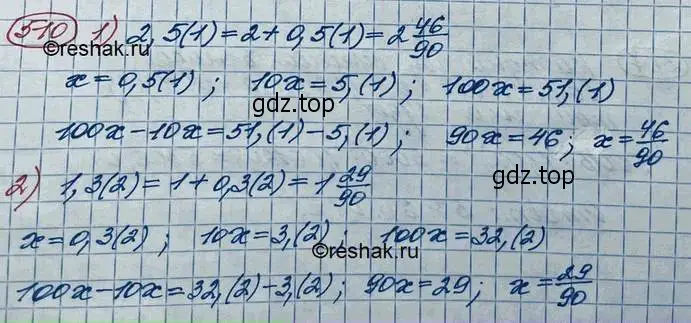 510 1) 2,5(1)=2+0,5(1)=2 46/90
©reshak.ru
x=0,5(1); 10x=5,(1); 100x=51,(1)
gdz.top
gdz.top
100x-10x=51,(1)-5,(1); 90x=46; x=46/90
2) 1,3(2)=1+0,3(2)=1 29/90
x=0,3(2); 10x=3,(2); 100x=32,(2)
©reshak.ru
100x-10x=32,(2)-3,(2); 90x=29; x=29/90